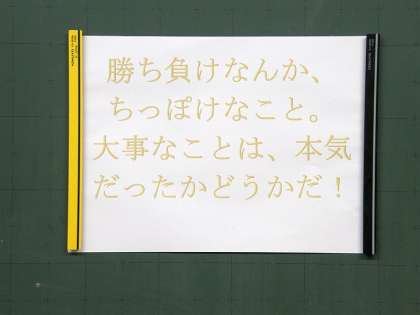 勝ち負けなんか、
ちっぽけなこと。
大事なことは、本気
だったかどうかだ！